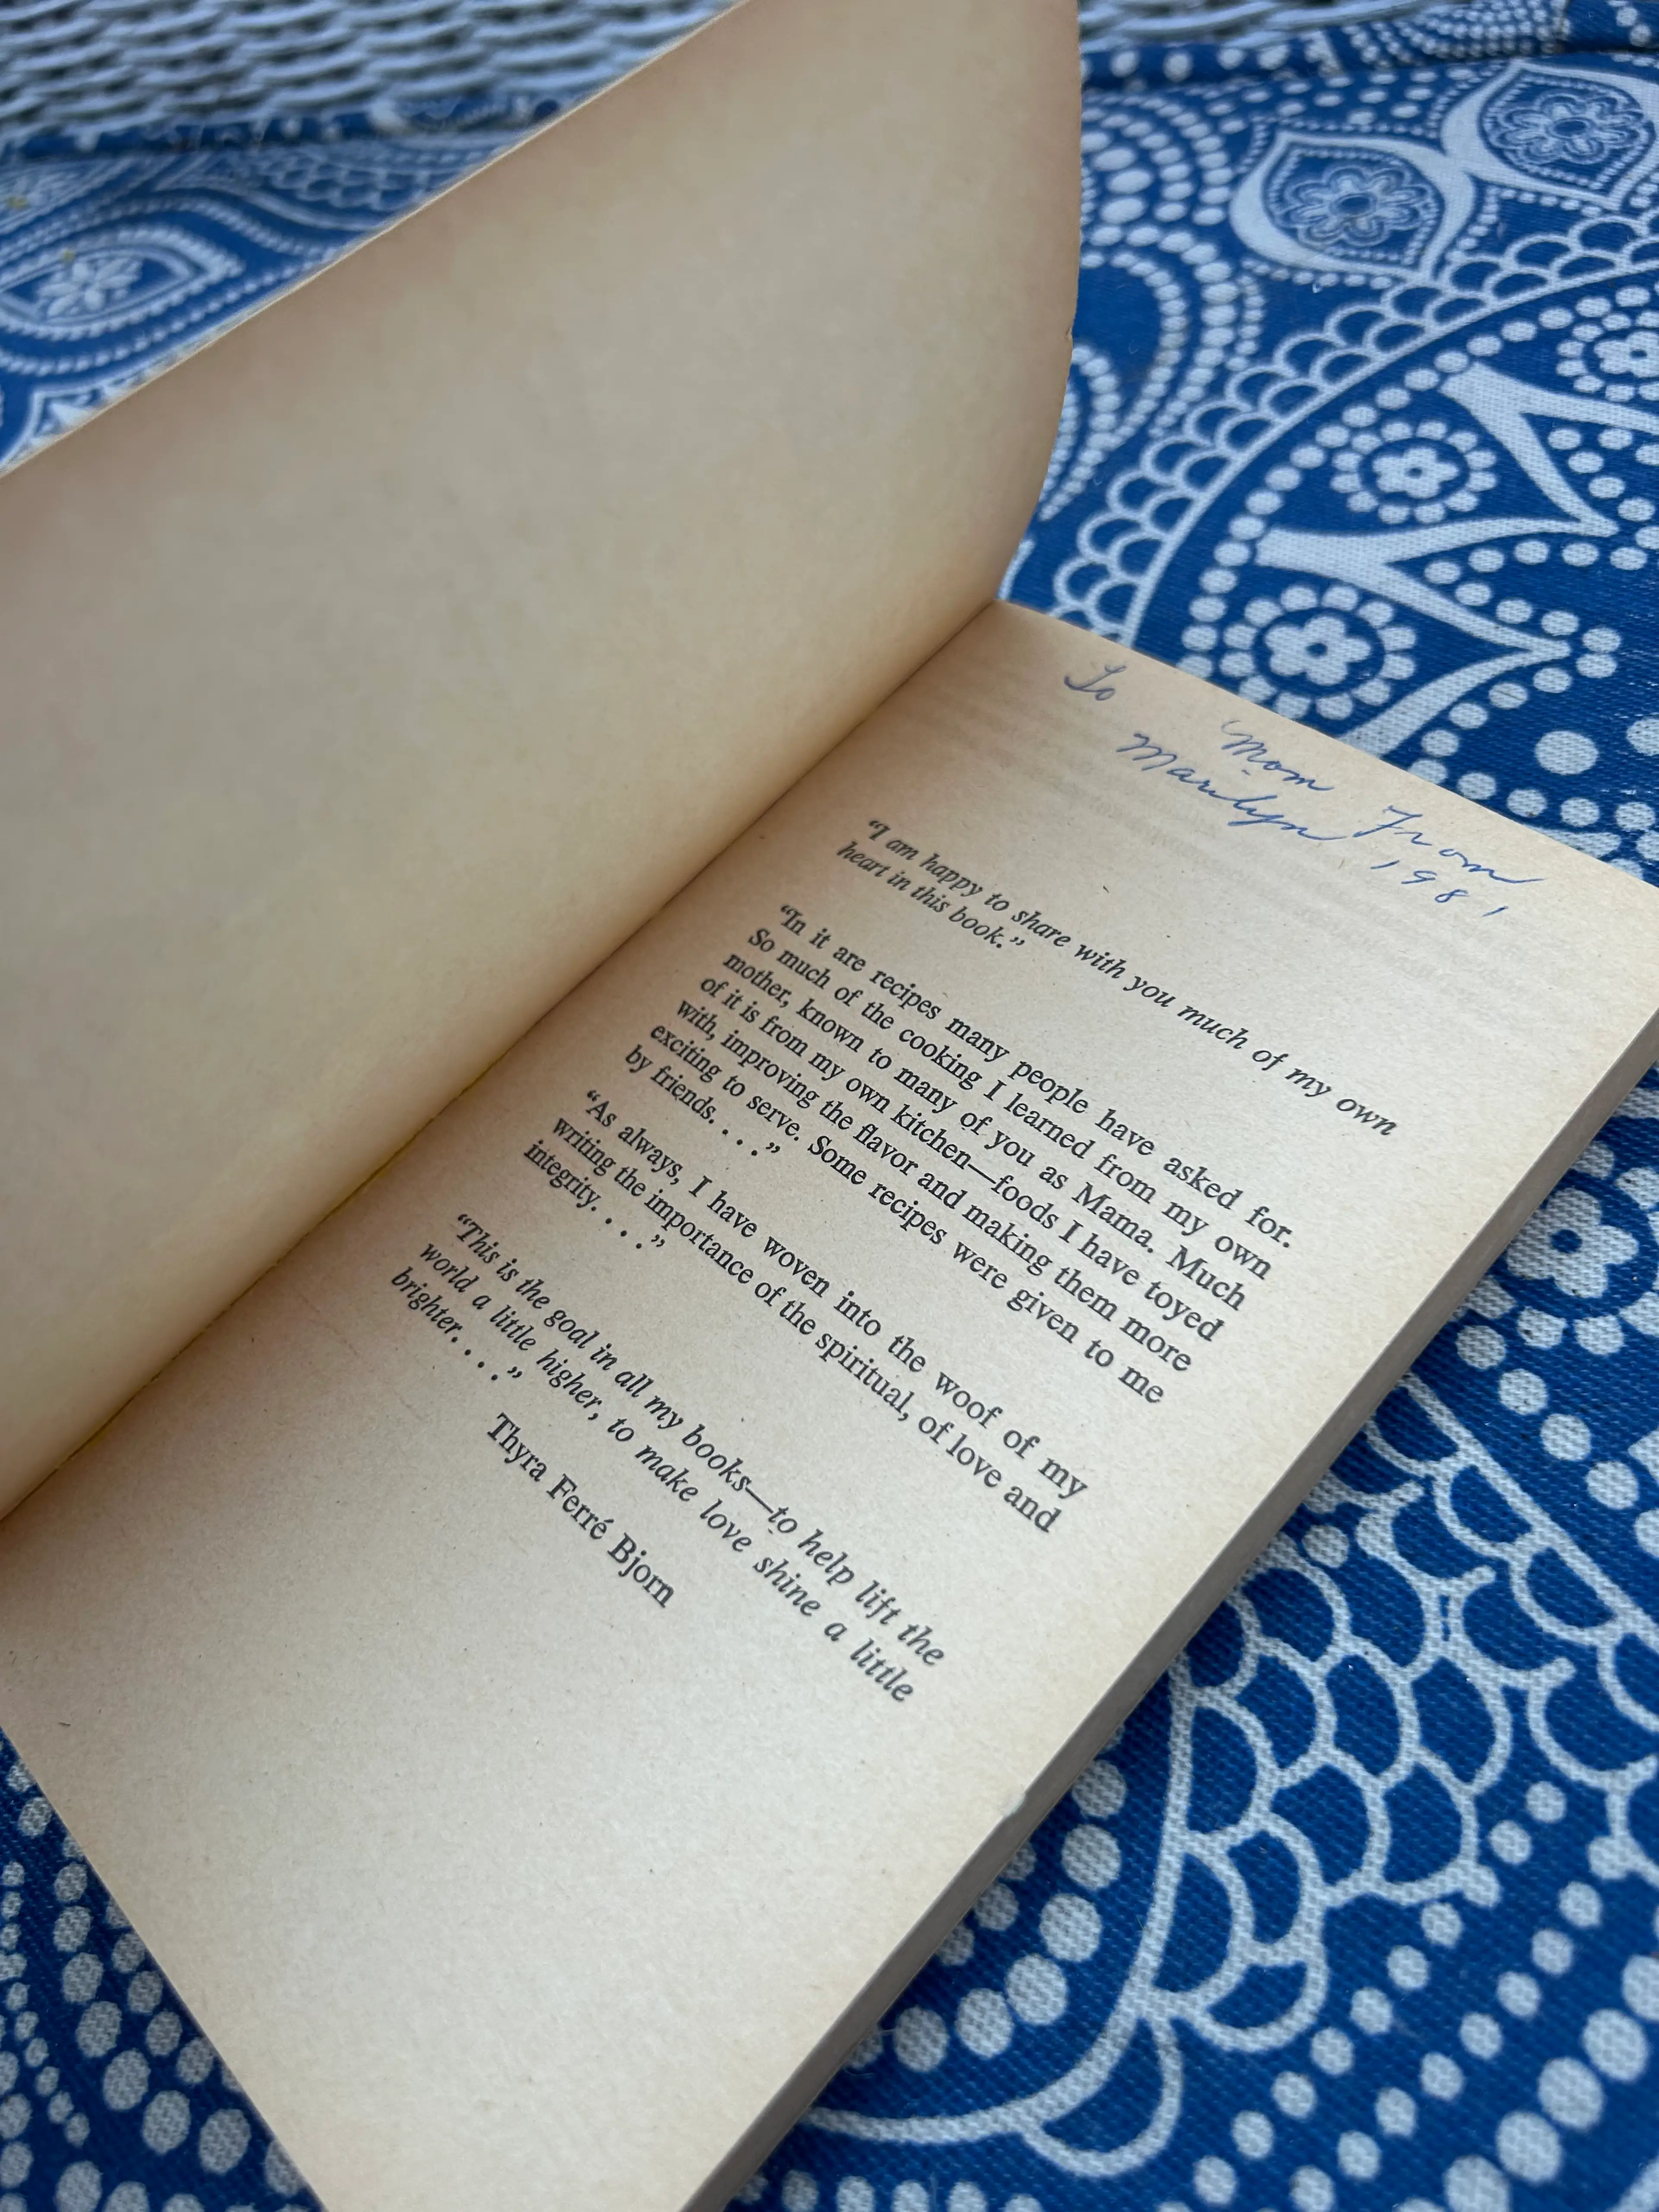 To Mom From
Marilyn 1981
“I am happy to share with you much of my own
heart in this book.”
“In it are recipes many people have asked for.
So much of the cooking I learned from my own
mother, known to many of you as Mama. Much
of it is from my own kitchen—foods I have toyed
with, improving the flavor and making them more
exciting to serve. Some recipes were given to me
by friends. . . .”
“As always, I have woven into the woof of my
writing the importance of the spiritual, of love and
integrity. . . .”
“This is the goal in all my books—to help lift the
world a little higher, to make love shine a little
brighter. . . .”
Thyra Ferré Bjorn